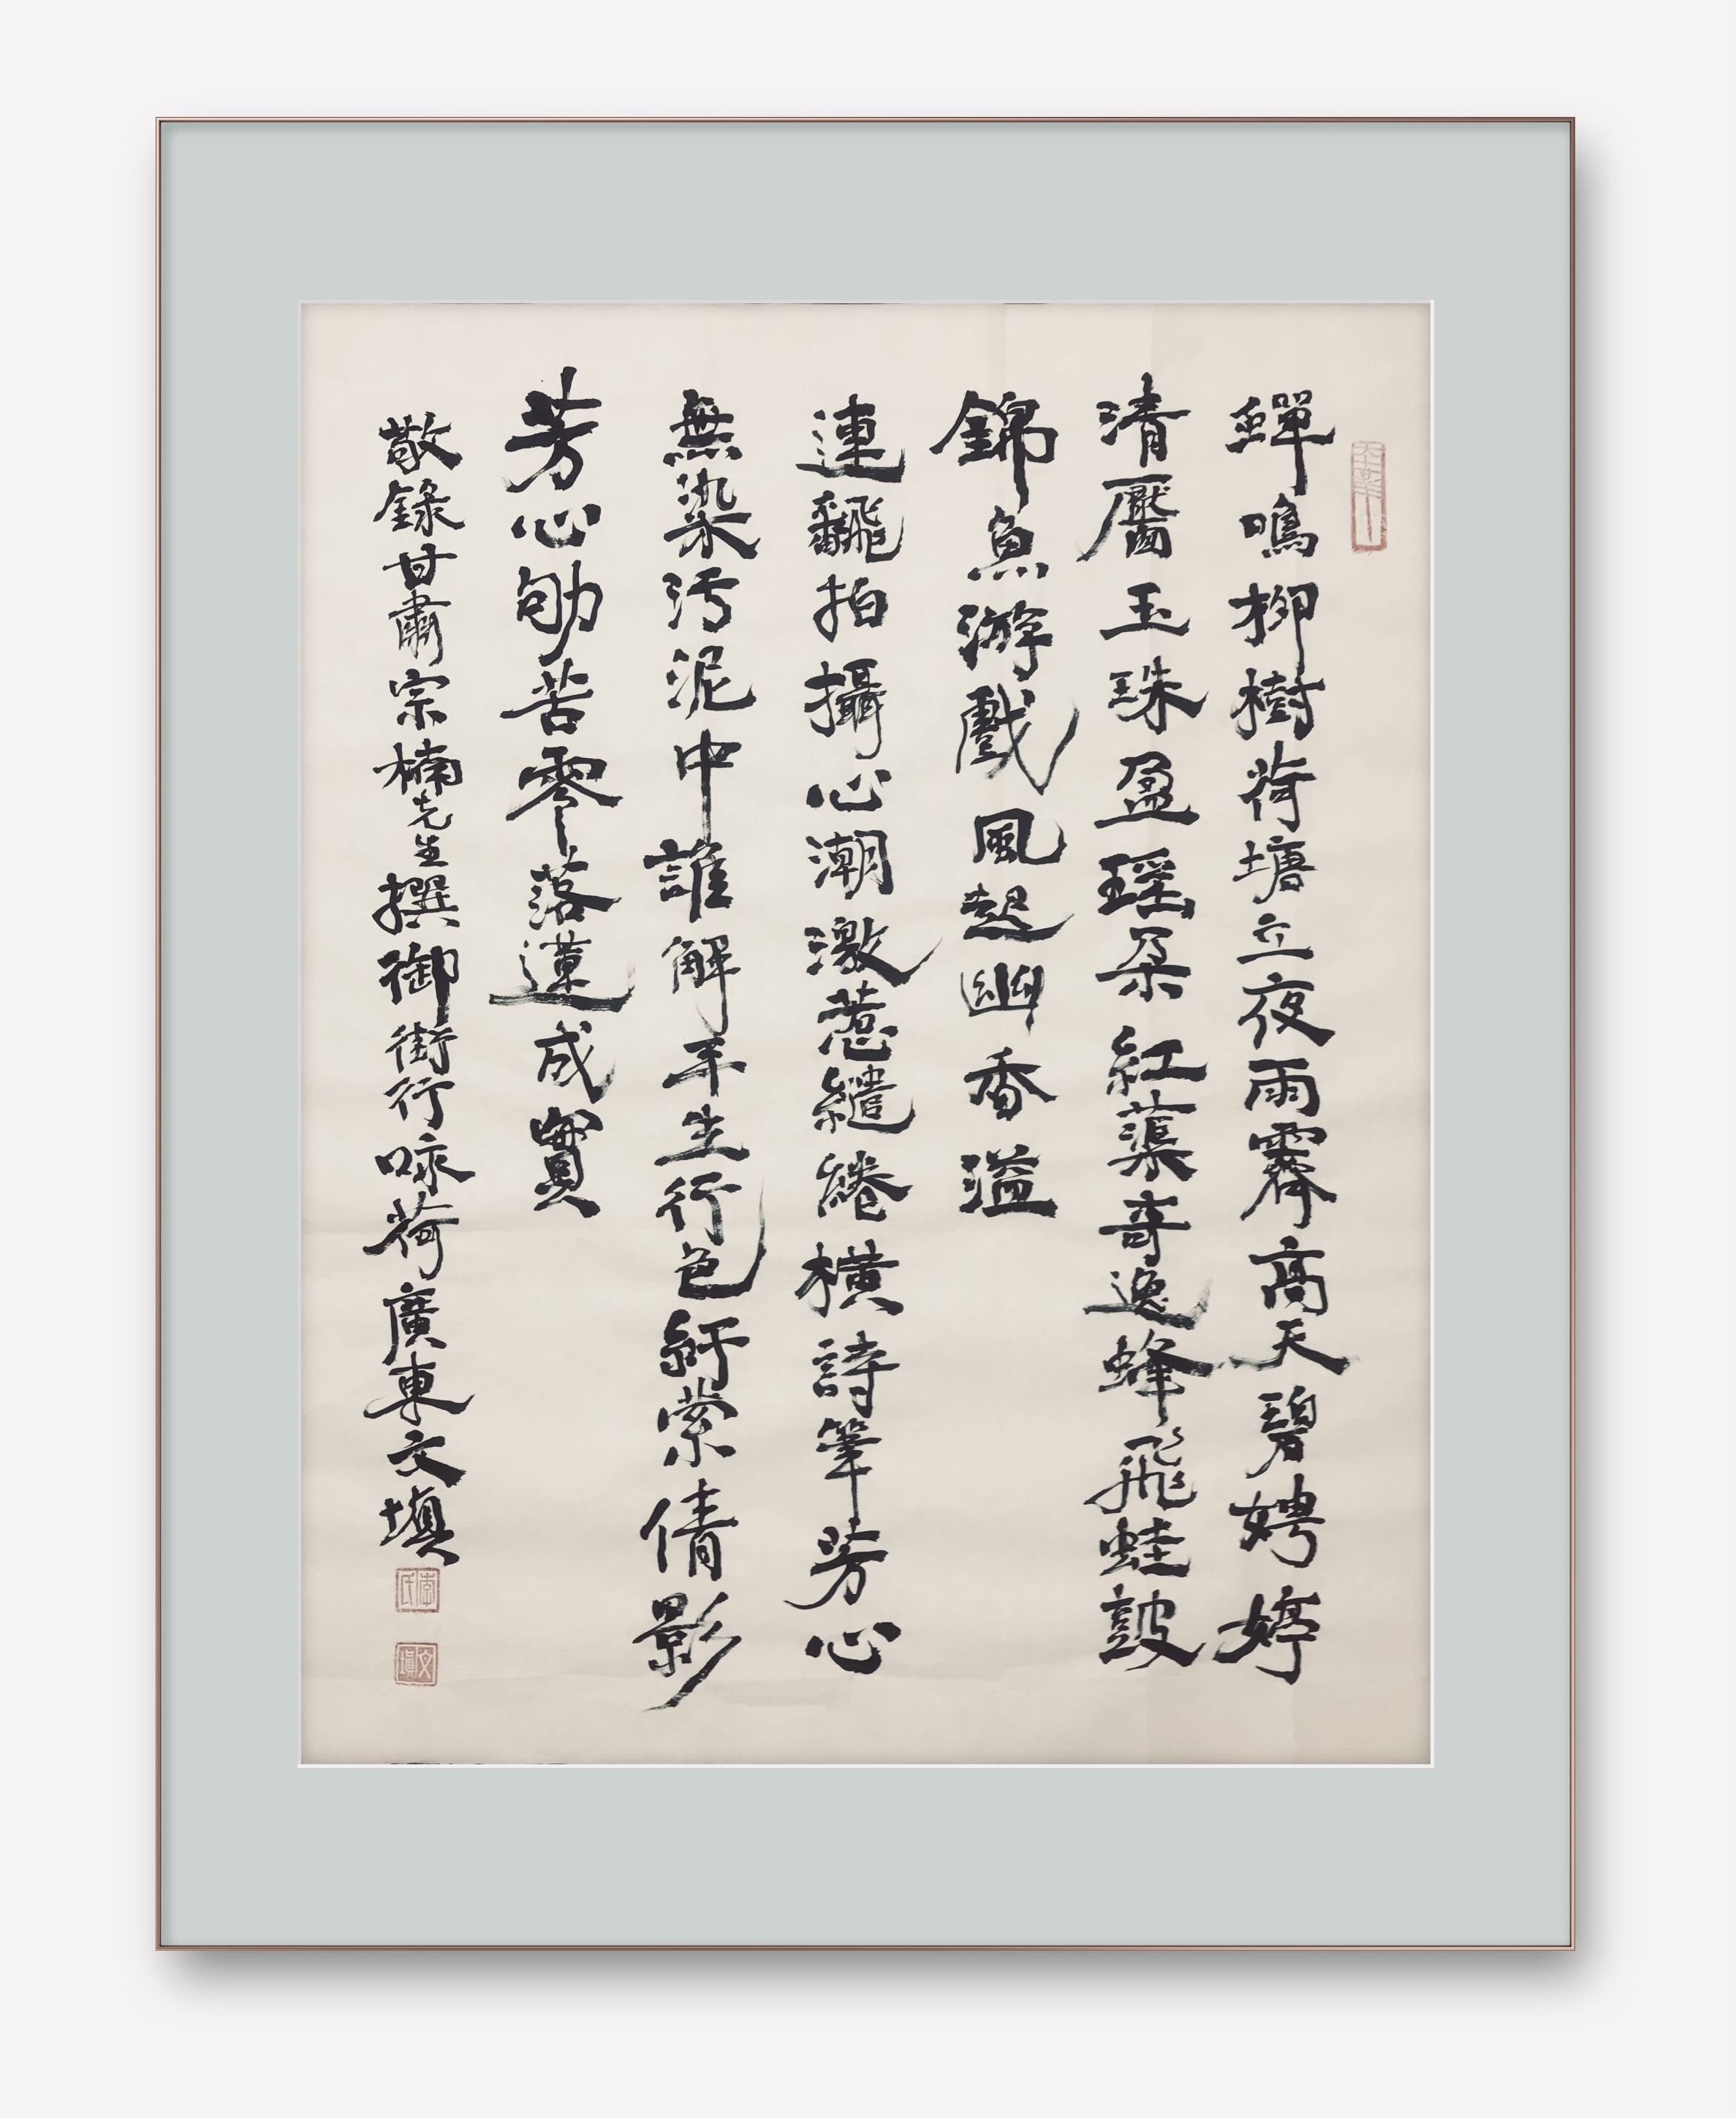 蟬鳴柳樹荷塘立夜雨霽高天碧娉婷
清靨玉珠盈瑶朵紅蕖奇逸蜂飛蛙鼓
錦魚游戲風起幽香溢
連翻拍攝心潮激惹繾綣橫詩筆芳心
無染污泥中誰解平生行色紆縈倩影
芳心劬苦零落蓮成實
敬錄甘肅宗楠先生撰御街行咏荷廣東文塡
李氏
文塡